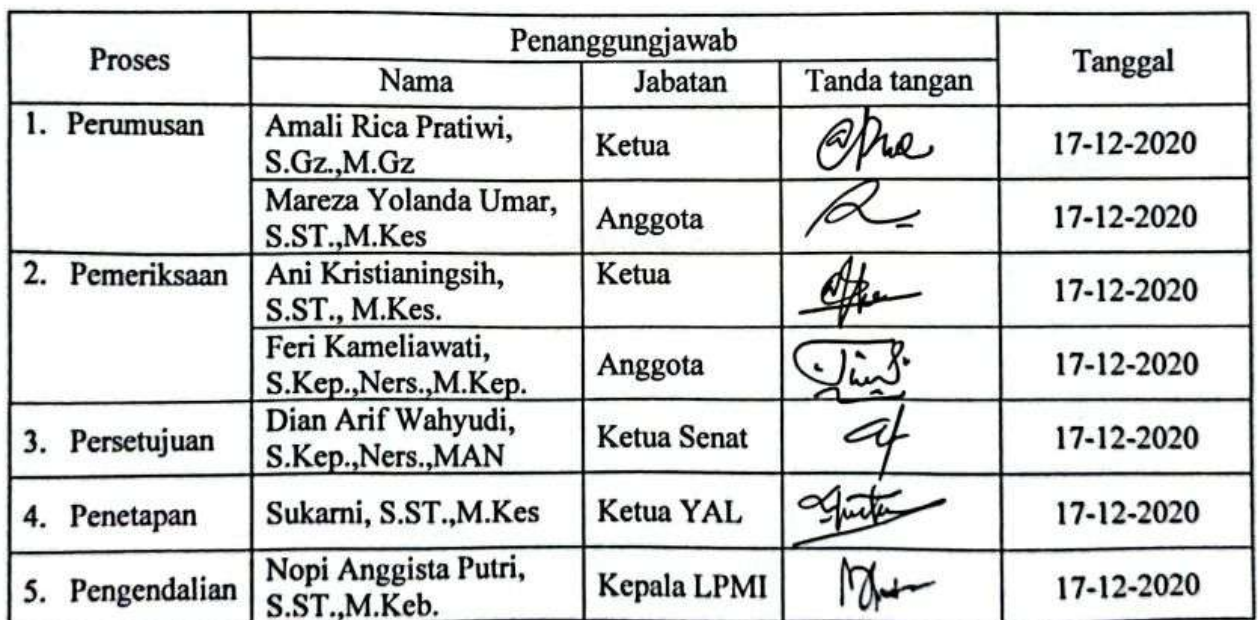 Proses
Penanggungjawab
Tanggal
Nama
Jabatan
Tanda tangan
1. Perumusan
Amali Rica Pratiwi,
S.Gz.,M.Gz
Ketua
17-12-2020
Mareza Yolanda Umar,
S.ST.,M.Kes
Anggota
17-12-2020
2. Pemeriksaan
Ani Kristianingsih,
S.ST., M.Kes.
Ketua
17-12-2020
Feri Kameliawati,
S.Kep.,Ners.,M.Kep.
Anggota
17-12-2020
3. Persetujuan
Dian Arif Wahyudi,
S.Kep.,Ners.,MAN
Ketua Senat
17-12-2020
4. Penetapan
Sukarni, S.ST.,M.Kes
Ketua YAL
17-12-2020
5. Pengendalian
Nopi Anggista Putri,
S.ST.,M.Keb.
Kepala LPMI
17-12-2020